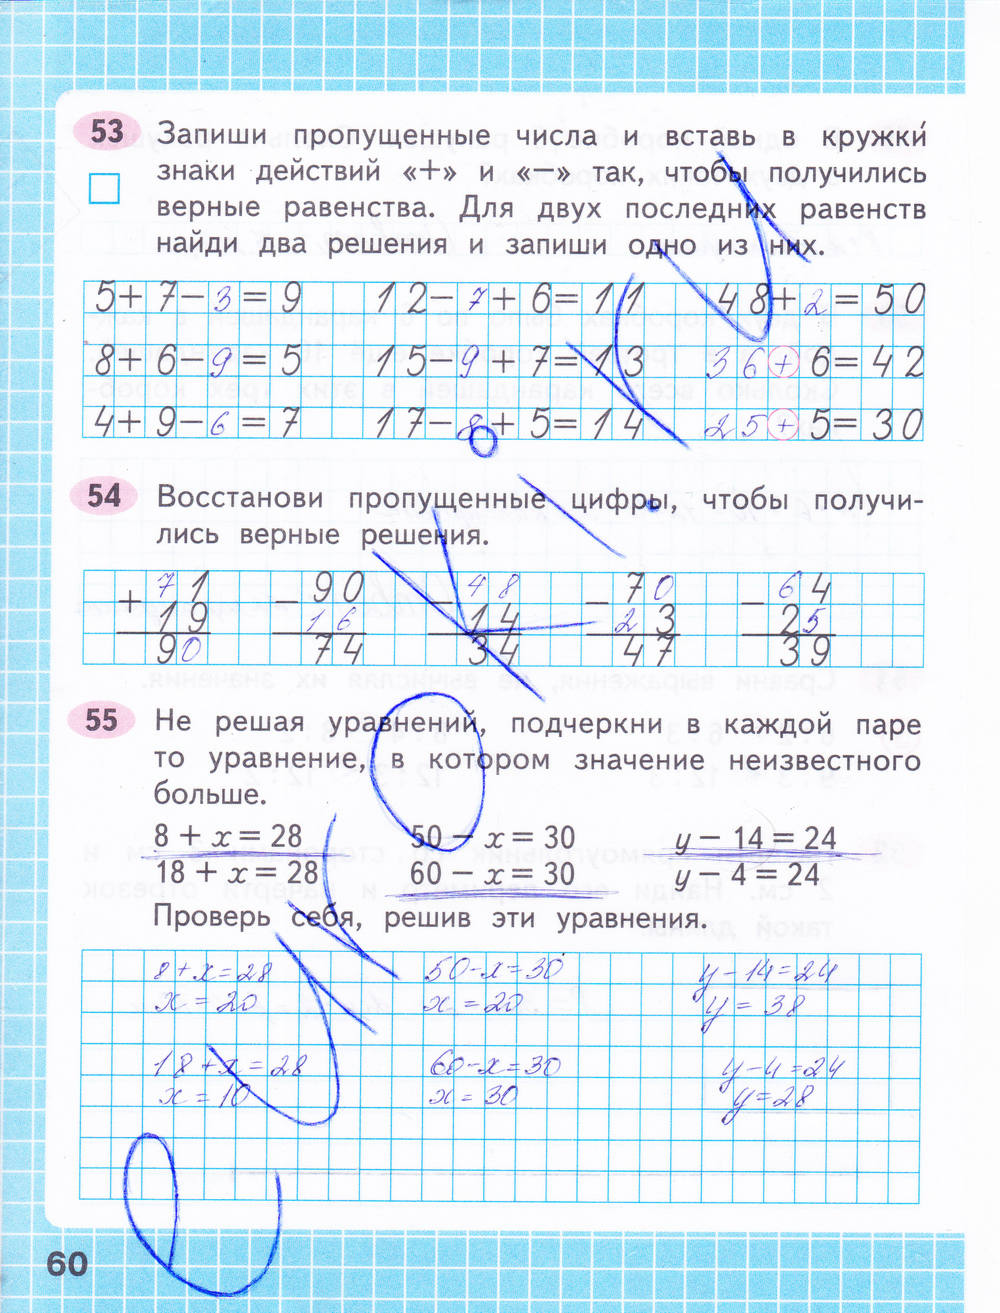 53 Запиши пропущенные числа и вставь в кружки́
знаки действий «+» и «−» так, чтобы получились
верные равенства. Для двух последних равенств
найди два решения и запиши одно из них.
5+7−3=9 12−7+6=11 48+2=50
8+6−9=5 15−9+7=13 36+6=42
4+9−6=7 17−8+5=14 25+5=30
54 Восстанови пропущенные цифры, чтобы получи-
лись верные решения.
+71 −90 −48 −70 −64
19 16 14 23 25
90 74 34 47 39
55 Не решая уравнений, подчеркни в каждой паре
то уравнение, в котором значение неизвестного
больше.
8 + x = 28 50 − x = 30 y − 14 = 24
18 + x = 28 60 − x = 30 y − 4 = 24
Проверь себя, решив эти уравнения.
8+x=28 50−x=30 y−14=24
x=20 x=20 y=38
18+x=28 60−x=30 y−4=24
x=10 x=30 y=28
60